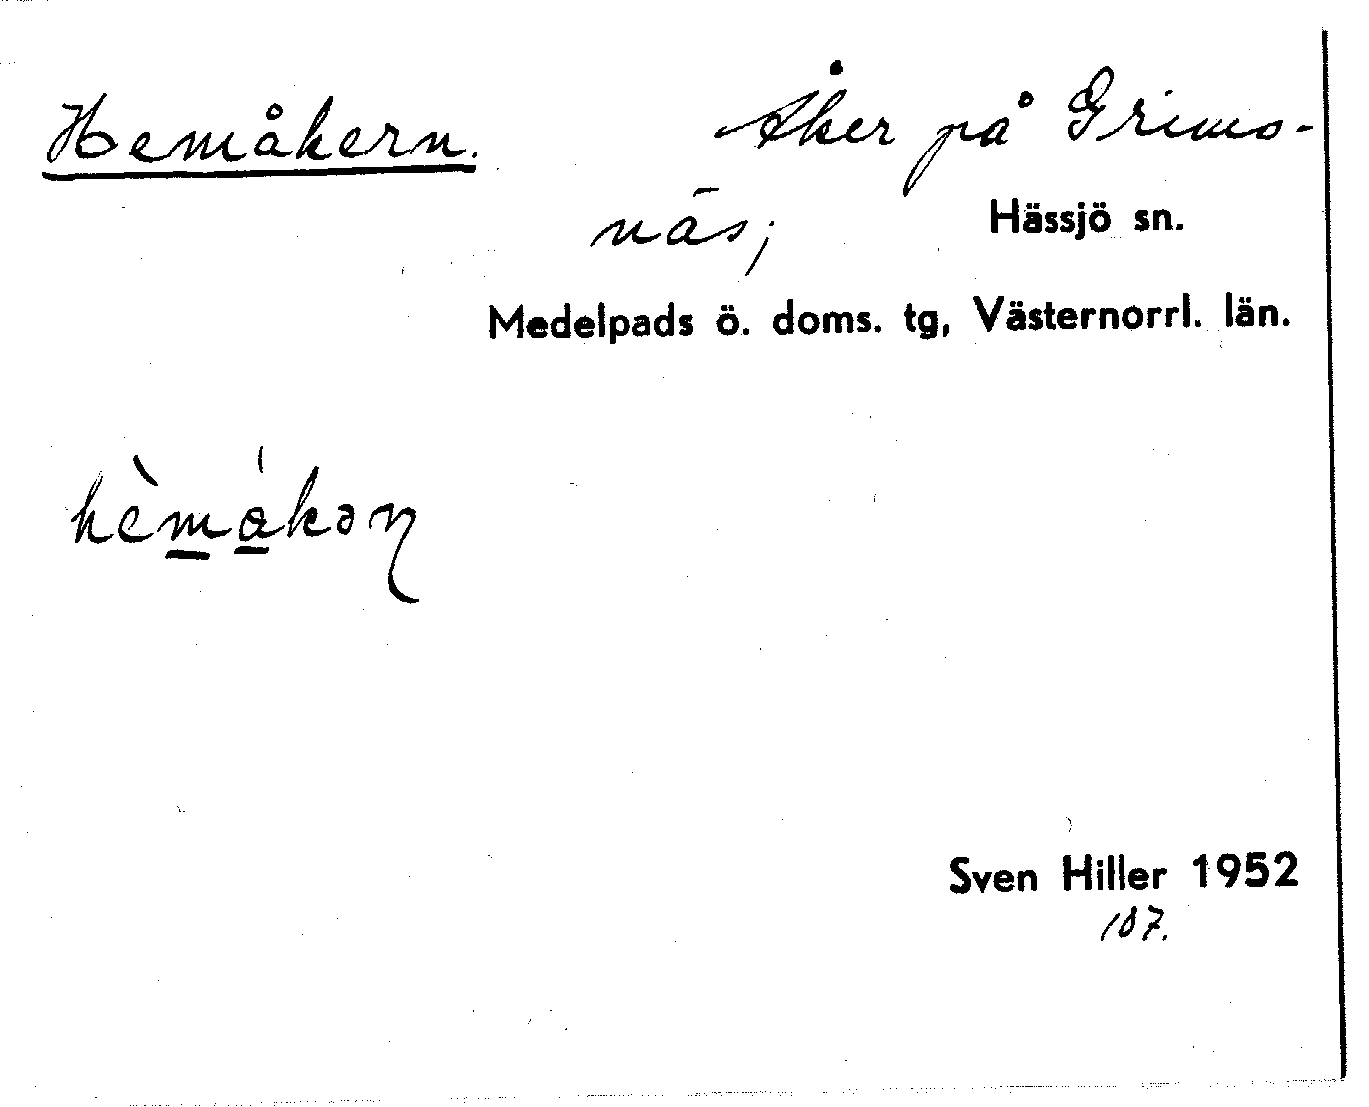 Hemåkern. Åker på Grims-
näs; Hässjö sn.
Medelpads ö. doms. tg, Västernorrl. län.
hèmákəɳ
Sven Hiller 1952
107.